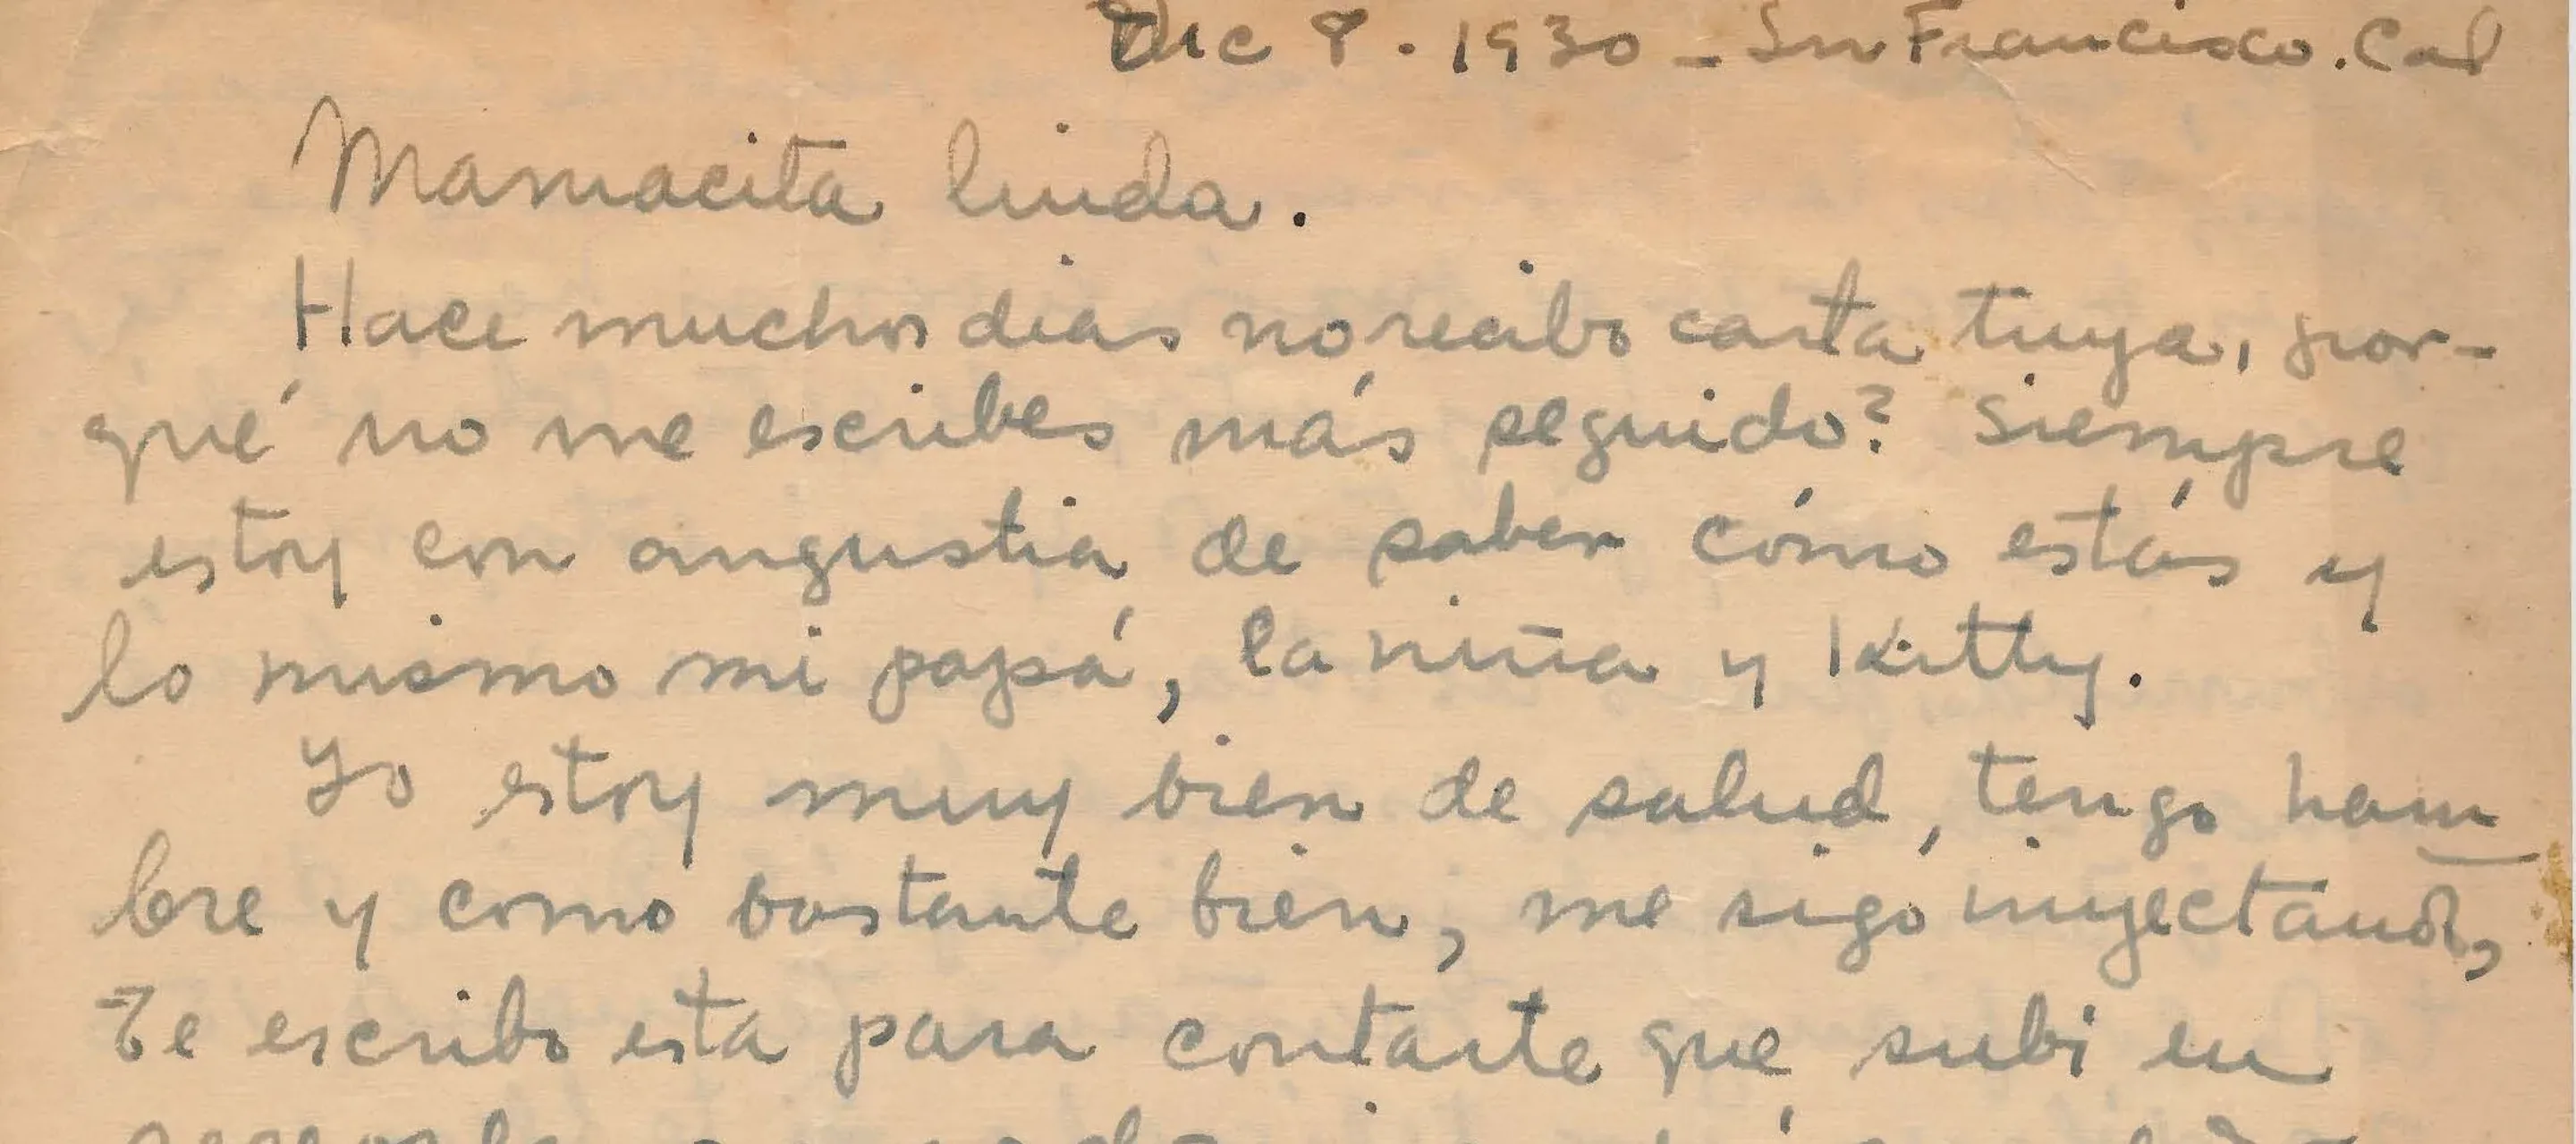 Dic 8. 1930 - Sn Francisco. Cal
Mamacita linda.
Hace muchos dias no recibo carta tuya, por-
qué no me escribes más seguido? Siempre
estoy con angustia de saber cómo estás y
lo mismo mi papá, la niña y Kitty.
Yo estoy muy bien de salud, tengo ham
bre y como bastante bien, me sigo inyectando,
Te escribo esta para contarte que subi en